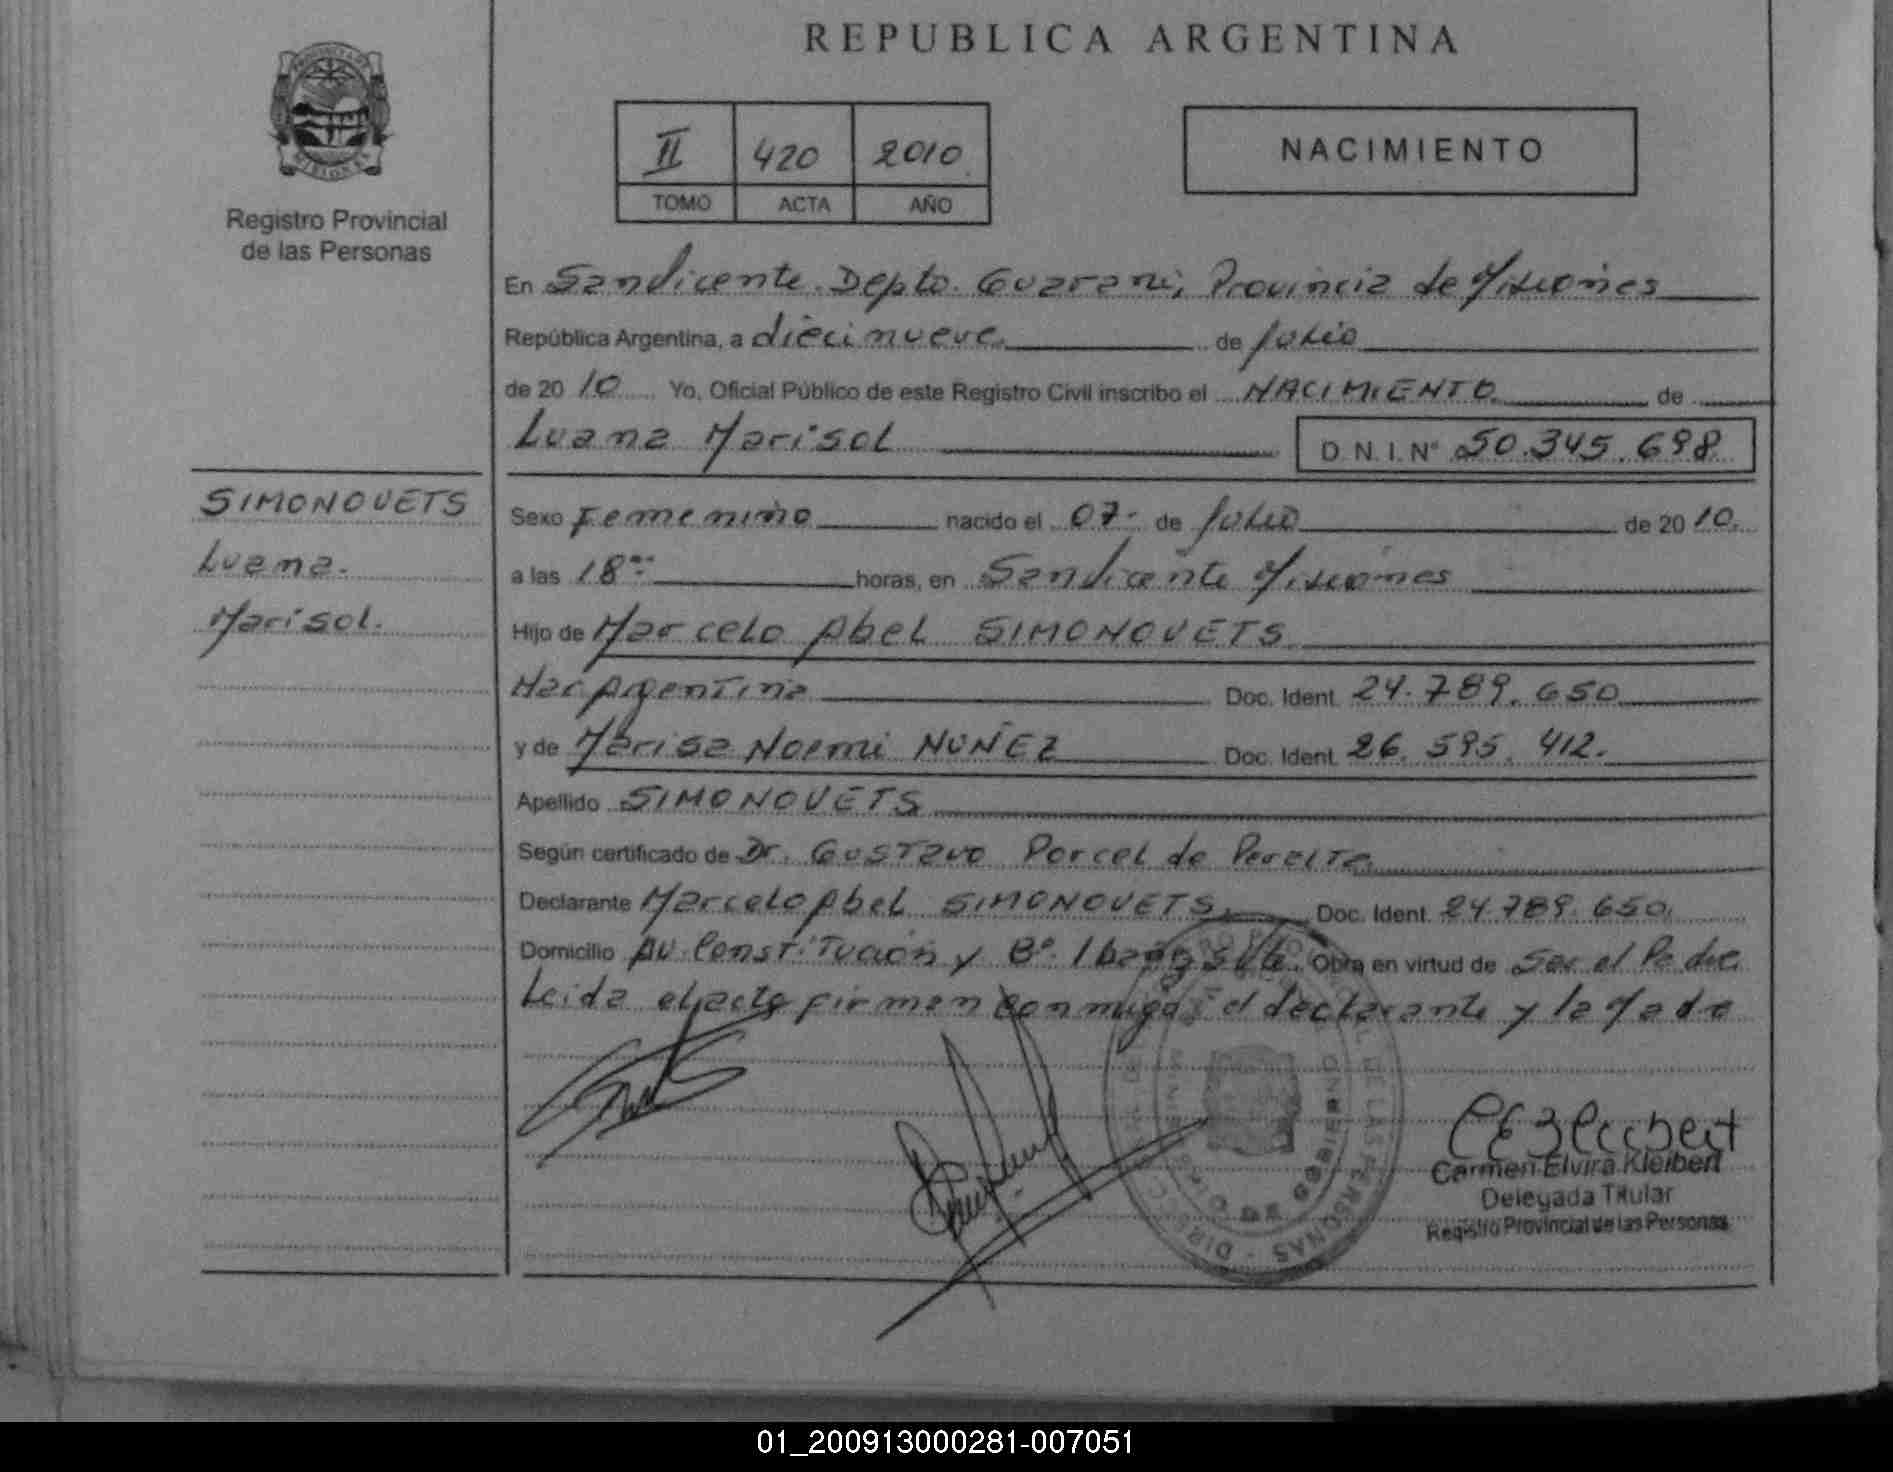 REPUBLICA ARGENTINA
PROVINCIA DE
MISIONES
Registro Provincial
de las Personas
II 420 2010
TOMO ACTA AÑO
NACIMIENTO
En Sanvicente. Depto. Guarani, Provincia de Misiones
República Argentina, a diecinueve de Julio
de 20 10 Yo, Oficial Público de este Registro Civil inscribo el NACIMIENTO de
Luana Marisol D.N.I. Nº 50.345.698
SIMONOVETS
Luana.
Marisol.
Sexo Femenino nacido el 07 de Julio de 20 10.
a las 18 horas, en Sanvicente Misiones
Hijo de Marcelo Abel SIMONOVETS
Nac Argentina Doc. Ident. 24.789.650
y de Marisa Noemi NUÑEZ Doc. Ident. 26.595.412.
Apellido SIMONOVETS
Según certificado de Dr. Gustavo Porcel de Peralta
Declarante Marcelo Abel SIMONOVETS Doc. Ident. 24.789.650.
Domicilio Av. Constitución y Bº. Obra en virtud de Ser el Padre
Leida el acta firman conmigo el declarante y la Madre
Carmen Elvira Kleibert
Delegada Titular
Registro Provincial de las Personas
01_200913000281-007051